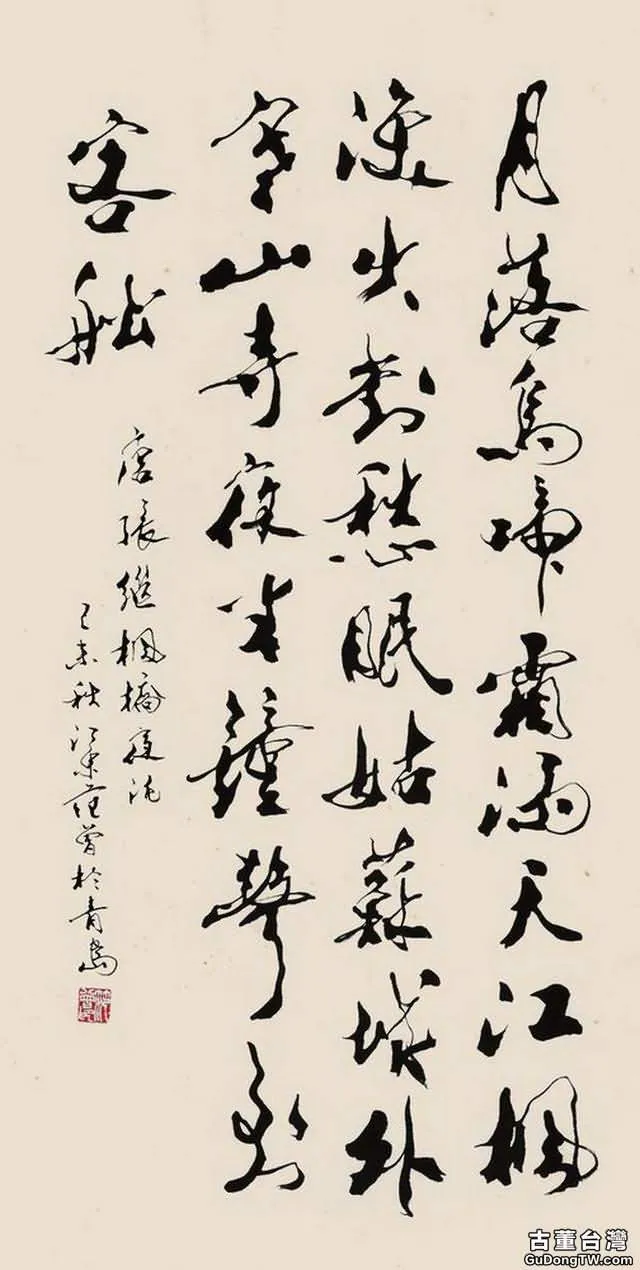 月落烏啼霜滿天江楓
漁火對愁眠姑蘇城外
寒山寺夜半鐘聲到
客船
唐張繼楓橋夜泊
己未秋江東范曾於青島
古董台灣
GuDongTW.com